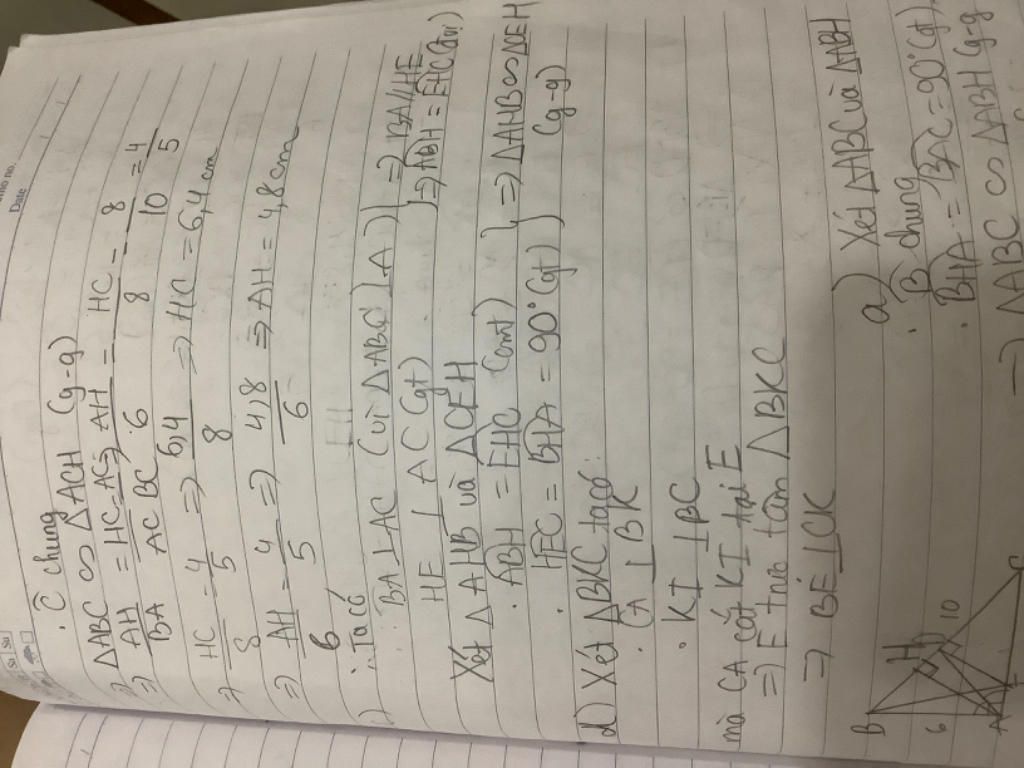 Date
Su Sa
. Ĉ chung
=> ΔABC ∽ ΔACH (g-g)
=> AH/BA = HC/AC = AC/BC => AH/6 = HC/8 = 8/10 = 4/5
=> HC/8 = 4/5 => 6,4/8 => HC = 6,4 cm
=> AH/6 = 4/5 => 4,8/6 => AH = 4,8 cm
c) Ta có
BA ⊥ AC (vì ΔABC ⊥ A) } => BA // HE
HE ⊥ AC (gt) } => ABH = EHC (đv)
Xét ΔAHB và ΔCEH
. ABH = EHC (cmt) } => ΔAHB ∽ ΔCEH
. HEC = BHA = 90° (gt) } (g-g)
d) Xét ΔBKC ta có:
. CA ⊥ BK
. KI ⊥ BC
mà CA cắt KI tại E
=> E trực tâm ΔBKC
=> BE ⊥ CK
a) Xét ΔABC và ΔABH
. B̂ chung
. BHA = BAC = 90° (gt)
=> ΔABC ∽ ΔABH (g-g)
B
6
H
10
A
C